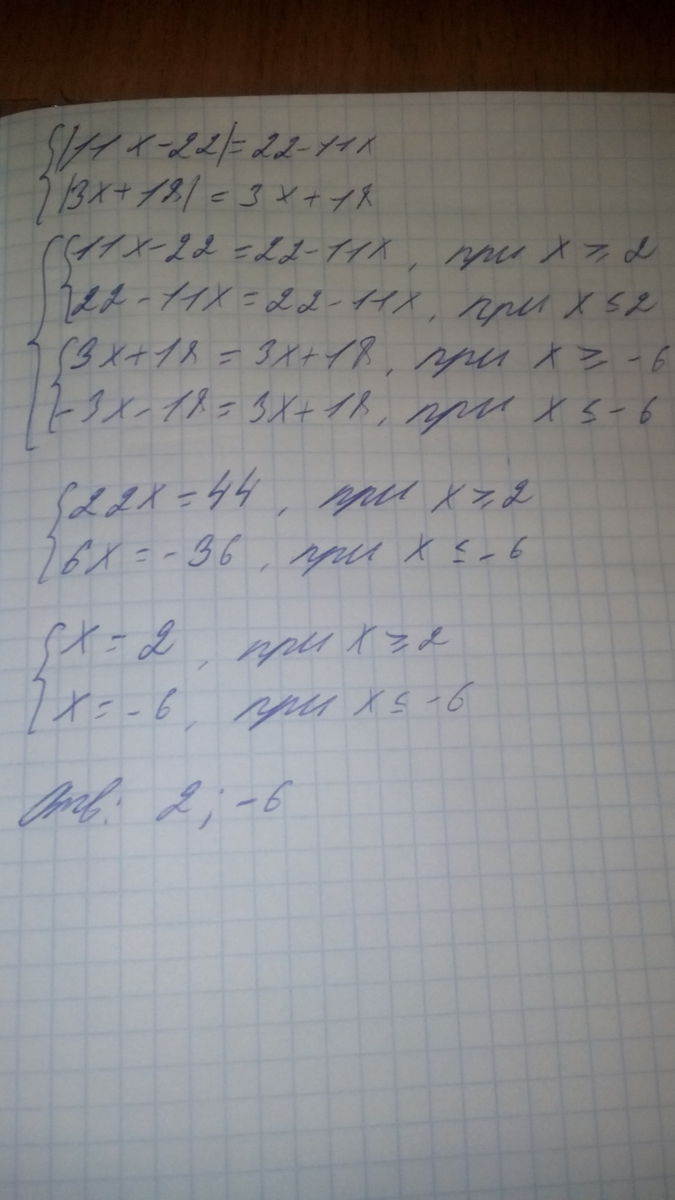 |11x-22|=22-11x
|3x+18|=3x+18
11x-22=22-11x, при x≥2
22-11x=22-11x, при x≤2
3x+18=3x+18, при x≥-6
-3x-18=3x+18, при x≤-6
22x=44, при x≥2
6x=-36, при x≤-6
x=2, при x≥2
x=-6, при x≤-6
Отв: 2; -6